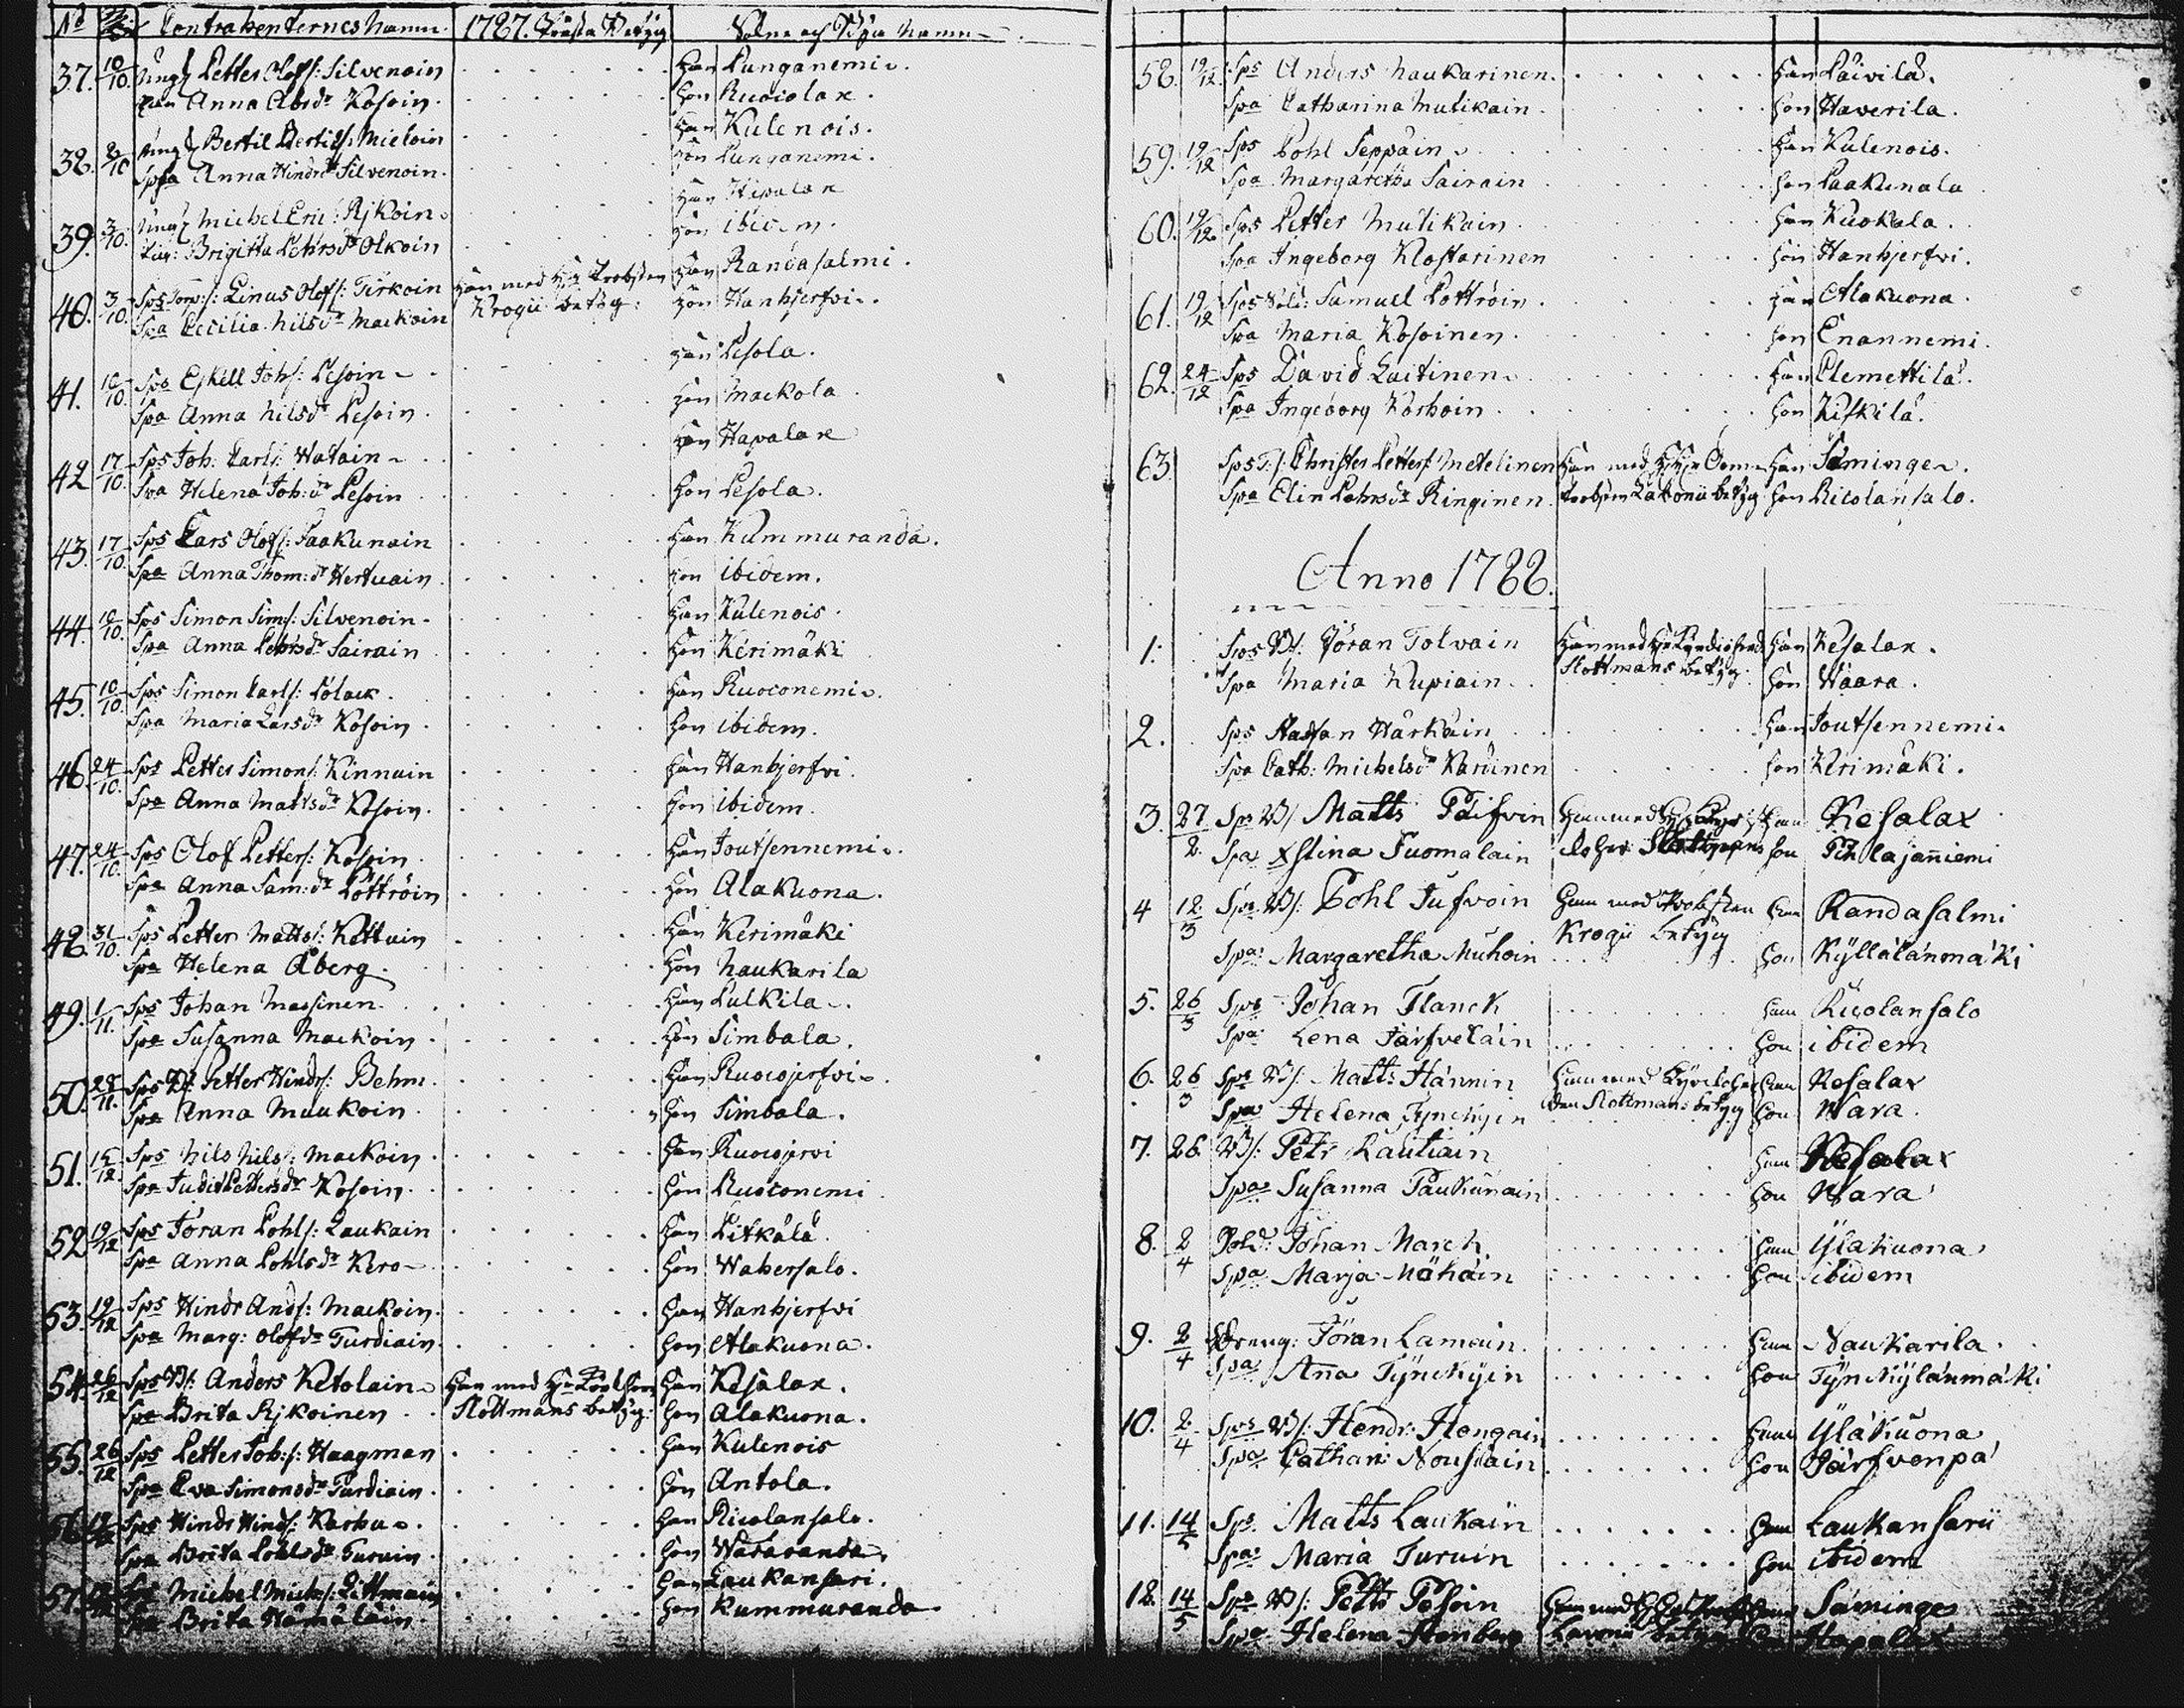 No Contrahenternes Namn 1787. Prästa Betyg Sokne och Byia Namn
37. 10/10 Ungk Petter Olofs: Silvenoin Han Punganemi
Pig Anna Abrsdr Kosoin Hon Ruocolax
38. 2/10 Ungk Bertil Bertils: Mieloin Han Kulenois
Spsa Anna Hindrdr Silvenoin Hon Punganemi
39. 3/10 Ungk Michel Eric: Rjkoin Han Hapalax
Pig: Brigitta Pehrsdr Olkoin Hon ibidem
40. 3/10 Sps Torp:/: Linus Olofs: Tirkoin Han med Hr Probsten Han Randasalmi
Spa Cecilia Nilsdr Mackoin Krogii betyg: Hon Hanhjerfvi
41. 10/10 Sps Eskell Johs: Pesoin Han Pesola
Spa Anna Nilsdr Pesoin Hon Mackola
42 17/10 Sps Joh: Carls: Watain Han Hapalax
Spa Helena Joh:dr Pesoin Hon Pesola
43. 17/10 Sps Lars Olofs: Paakunain Han Kummuranda
Spa Anna Thom:dr Hertuain Hon ibidem
44. 10/10 Sps Simon Sims: Silvenoin Han Kulenois
Spa Anna Pehrsdr Sairain Hon Kerimäki
45. 10/10 Sps Simon Carls: Pölack Han Ruoconemi
Spa Maria Larsdr Kosoin Hon ibidem
46 24/10 Sps Petter Simons: Kinnuin Han Hanhjerfvi
Spa Anna Mattsdr Kosoin Hon ibidem
47. 24/10 Sps Olof Petters: Kosoin Han Joutsennemi
Spa Anna Sam:dr Pöttröin Hon Alakuona
48. 31/10 Sps Petter Matts: Kettuin Han Kerimäki
Spa Helena Åberg Hon Naukarila
49. 1/11 Sps Johan Massinen Han Pulkila
Spa Susanna Mackoin Hon Simbala
50. 28/11 Sps Bf: Petter Hindrs: Behm Han Ruocojerfvi
Spa Anna Muukoin Hon Simbala
51. 15/12 Sps Nils Nils: Mackoin Han Ruocojervi
Spa Judit Pettersdr Kosoin Hon Ruoconemi
52 19/12 Sps Jöran Pohls: Laukain Han Pitkälä
Spa Anna Pohlsdr Kero Hon Wahersalo
53. 19/12 Sps Hindr Ands: Mackoin Han Hanhjerfvi
Spa Marg: Olofdr Turdiain Hon Alakuona
54. 26/12 Sps Bf: Anders Ketolain Han med Hr Han Kesalax
Spa Brita Rjkoinen Slottmans betyg: Hon Alakuona
55. 26/12 Sps Petter Joh:s: Haagman Han Kulenois
Spa Eva Simonsdr Turdiain Hon Antola
56. Sps Hindr Hinds: Karhu Han Ricolansalo
Spa Brita Pohlsdr Turuin Hon Wataranda
57. Sps Michel Michs: Littmain Han Laukansari
Spa Brita Hämäläin Hon Kummuranda
58. 19/12 Sps Anders Naukarinen Han Päivilä
Spa Catharina Mutikain Hon Haverila
59. 19/12 Sps Pohl Seppäin Han Kulenois
Spa Margaretha Sairain Hon Paakunala
60. 19/12 Sps Petter Mutikain Han Kuokala
Spa Ingeborg Klostarinen Hon Hanhjerfvi
61. 19/12 Sps Sold: Samuel Pöttröin Han Alakuona
Spa Maria Kosoinen Hon Enannemi
62. 24/12 Sps David Laitinen Han Clemettilä
Spa Ingeborg Korhoin Hon Kiskilä
63. Sps T:/: Christer Petters: Metelinen Han med Dom Han Säminge
Spa Elin Pehrsdr Ringinen Probsten Lakonii betyg Hon Ricolansalo
Anno 1788.
1. Sps Bf: Jöran Tolvain Han med Han Kesalax
Spa Maria Kupiain Slottmans betyg Hon Waara
2. Sps Staffan Härkäin Han Joutsennemi
Spa Cath: Michelsdr Karuinen Hon Kerimäki
3. 27/2 Sps Bf Matts Päifvin Han med Han Kesalax
Spa Xstina Suomalain Slottmans Hon Pihlajaniemi
4 12/3 Sps Bf: Pohl Jufvoin Han med Probsten Han Randasalmi
Spa: Margaretha Muhoin Krogii betyg Hon Kyllälänmäki
5. 26/3 Sps Johan Flanck Han Ricolansalo
Spa: Lena Järfveläin Hon ibidem
6. 26/3 Sps Bf: Matts Hännin Han med Han Kesalax
Spa Helena Tynckyin Slottmans betyg Hon Wara
7. 26 Bf: Petr Rautiain Han Kesalax
Spa Susanna Paukunain Hon Wara
8. 2/4 Sold: Johan March Han Ylakuona
Spa Marja Mähäin Hon ibidem
9. 2/4 Dreng: Jöran Lamain Han Naukarila
Spa Ana Tynckyin Hon Tynckylänmäki
10. 2/4 Sps Bf: Hendr: Hongain Han Yläkuona
Spa Cathari: Nousiain Hon Järfvenpä
11. 14/5 Sps Matts Laukain Han Laukansari
Spa: Maria Turuin Hon ibidem
12. 14/5 Sps Bf: Pettr Pesoin Han med Han Säminge
Spa Helena Stenberg betyg Hon Hapalax